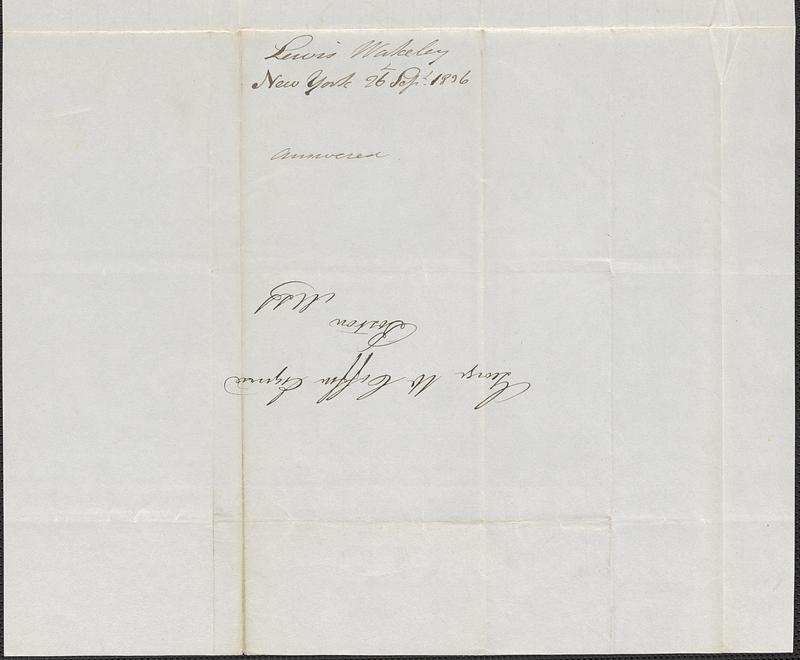 Lewis Wakeley
New York 26 Sept. 1836
Answered
George W Coffin Esquire
Boston
Mass